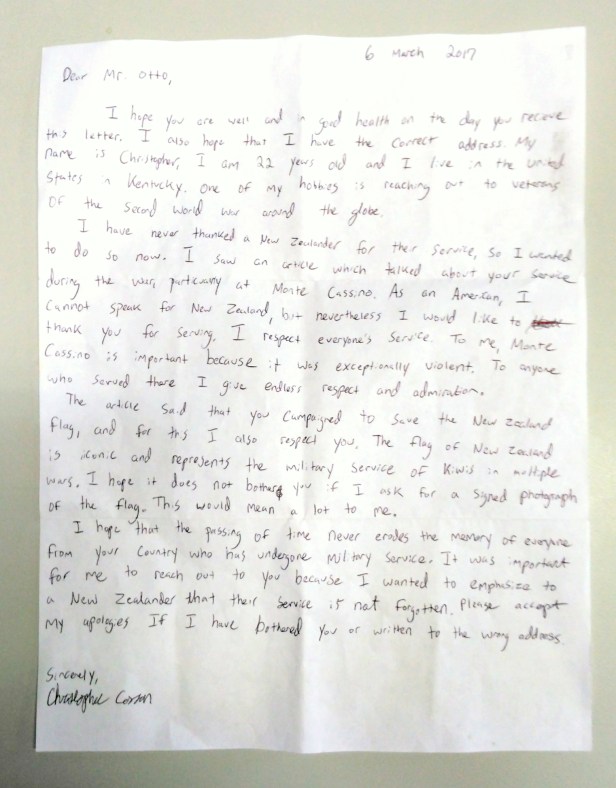 6 March 2017
Dear Mr. Otto,
I hope you are well and in good health on the day you receive
this letter. I also hope that I have the correct address. My
name is Christopher, I am 22 years old and I live in the United
States in Kentucky. One of my hobbies is reaching out to veterans
of the Second World War around the globe.
I have never thanked a New Zealander for their service, so I wanted
to do so now. I saw an article which talked about your service
during the war, particularly at Monte Cassino. As an American, I
cannot speak for New Zealand, but nevertheless I would like to
thank you for serving. I respect everyone's service. To me, Monte
Cassino is important because it was exceptionally violent. To anyone
who served there I give endless respect and admiration.
The article said that you campaigned to save the New Zealand
flag, and for this I also respect you. The flag of New Zealand
is iconic and represents the military service of Kiwis in multiple
wars. I hope it does not bother you if I ask for a signed photgraph
of the flag. This would mean a lot to me.
I hope that the passing of time never erodes the memory of everyone
from your country who has undergone military service. It was important
for me to reach out to you because I wanted to emphasize to
a New Zealander that their service is not forgotten. Please accept
my apologies if I have bothered you or written to the wrong address.
Sincerely,
Christopher